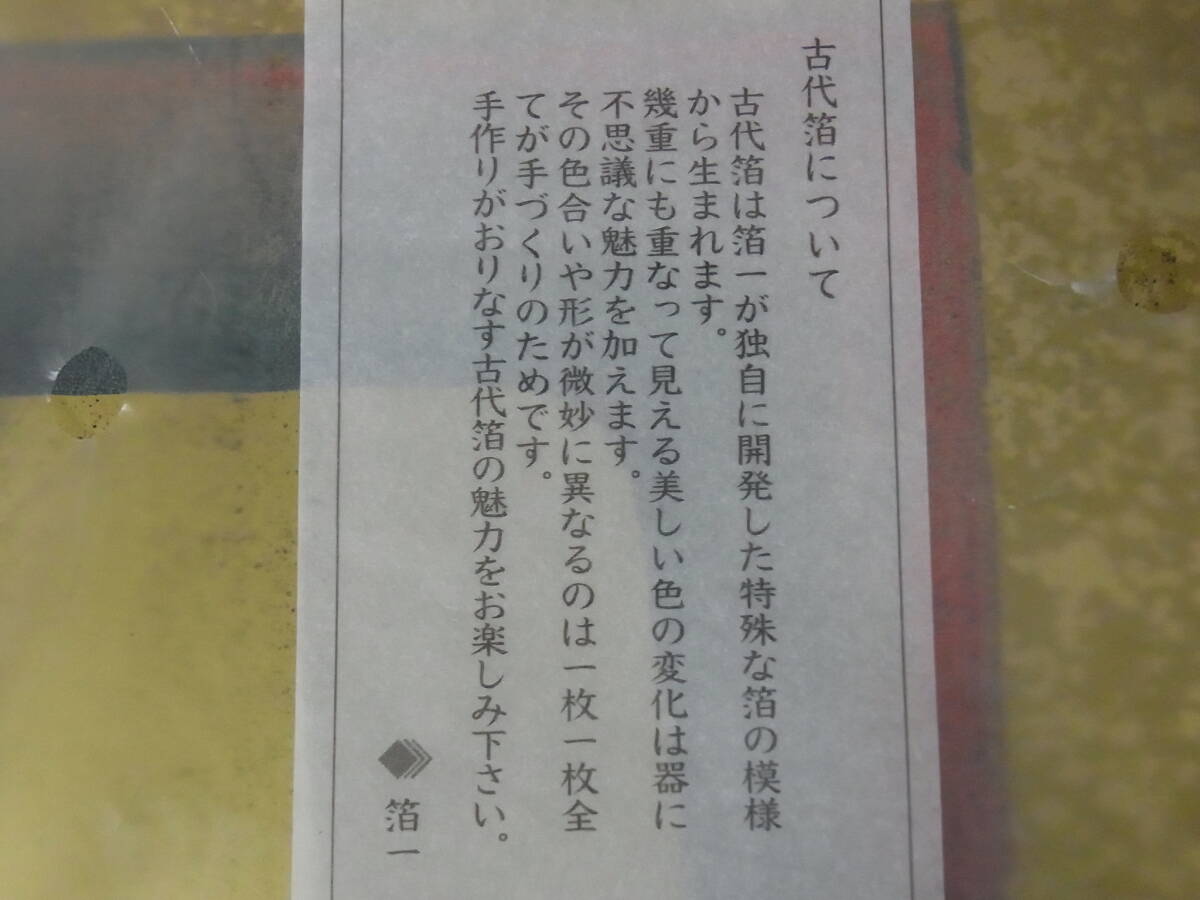 古代箔について
古代箔は箔一が独自に開発した特殊な箔の模様
から生まれます。
幾重にも重なって見える美しい色の変化は器に
不思議な魅力を加えます。
その色合いや形が微妙に異なるのは一枚一枚全
てが手づくりのためです。
手作りがおりなす古代箔の魅力をお楽しみ下さい。
箔一